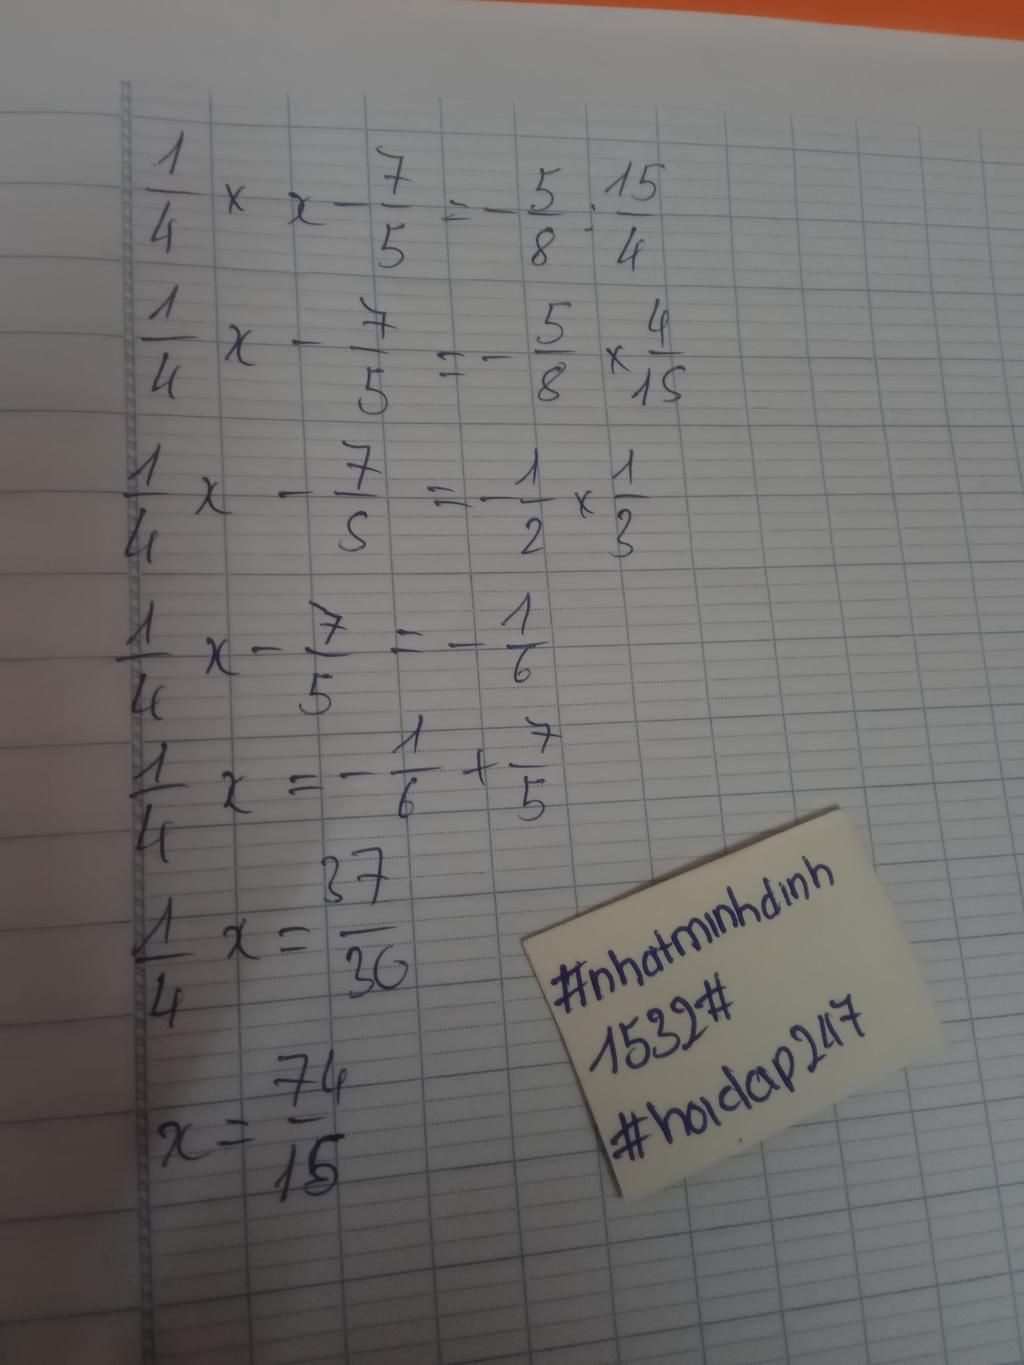 1/4 × x - 7/5 = - 5/8 : 15/4
1/4 x - 7/5 = - 5/8 × 4/15
1/4 x - 7/5 = - 1/2 × 1/3
1/4 x - 7/5 = - 1/6
1/4 x = - 1/6 + 7/5
1/4 x = 37/30
x = 74/15
#nhatminhdinh
1532#
#hoidap247